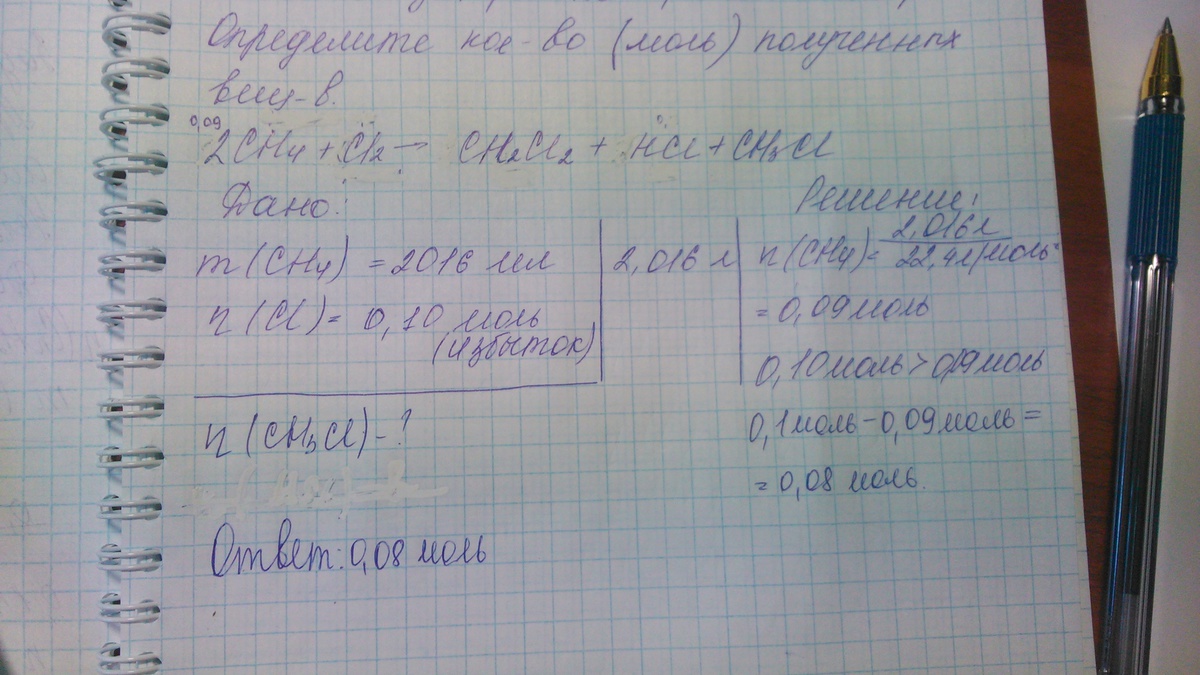 Определите кол-во (моль) полученных
вещ-в.
0,09
2CH4 + Cl2 → CH2Cl2 + HCl + CH3Cl
Дано:
m(CH4) = 2016 мл
n(Cl) = 0,10 моль
(избыток)
n(CH3Cl) - ?
2,016 л
Решение:
n(CH4) = 2,016л / 22,4л/моль =
= 0,09 моль
0,10 моль > 0,09 моль
0,1 моль - 0,09 моль =
= 0,08 моль.
Ответ: 0,08 моль